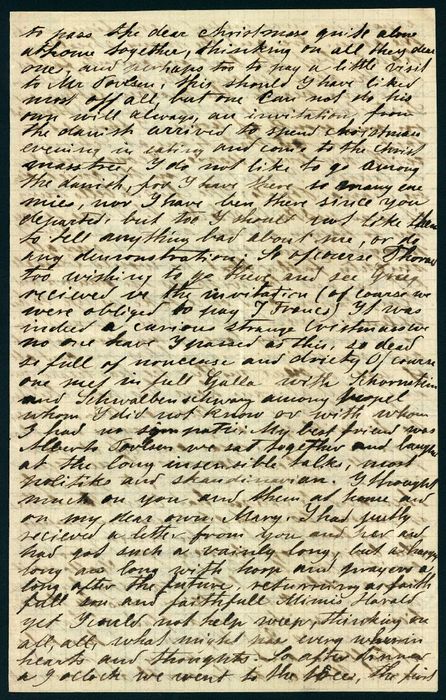 to pass the dear christmass quite alone
at home together, thinking on all they dear
one, and perhaps too to pay a little visit
to Mr Paulsen, this should I have liked
most off all, but one can not do his
own will always, an invitation from
the danish arrived to spend christmas
evening in eating and come to the Christ
masstree, I do not like to go among
the danish, for I have there so many ene
mies, nor I have been there since you
departed, but too I should not like them
to tell anything bad about me, or do
any demonstration; So ofcourse
too wishing to go there and see
recieved we the invitation (of course we
were obliged to pay 7 Francs) It was
indeed a curious strange Cristmass we
no one have I passed as this, so dead
so full of noncense and Of course
one mes in full Galla with Khornstein
and Schwalbenschwanz among peopel
whom I did not know or with whom
I had no simpatie. My best friend was
Alberto Paulsen we sat together and laughed
at the long insensible talks, most
politiks and skandinavian. I thought
much on you and them at home and
on my dear own Mary. I had justly
recieved a letter from you and her and
had got such a vainly long, but a happy
long ne long with hope and prayers a
long after the future, returning as faith
full son and faithfull Mimis Harald
yet I could not help weep, thinking on
all, all, what might has every when in
hearts and thoughts. So after dinner
a 9 oclock we went to the tree, the first